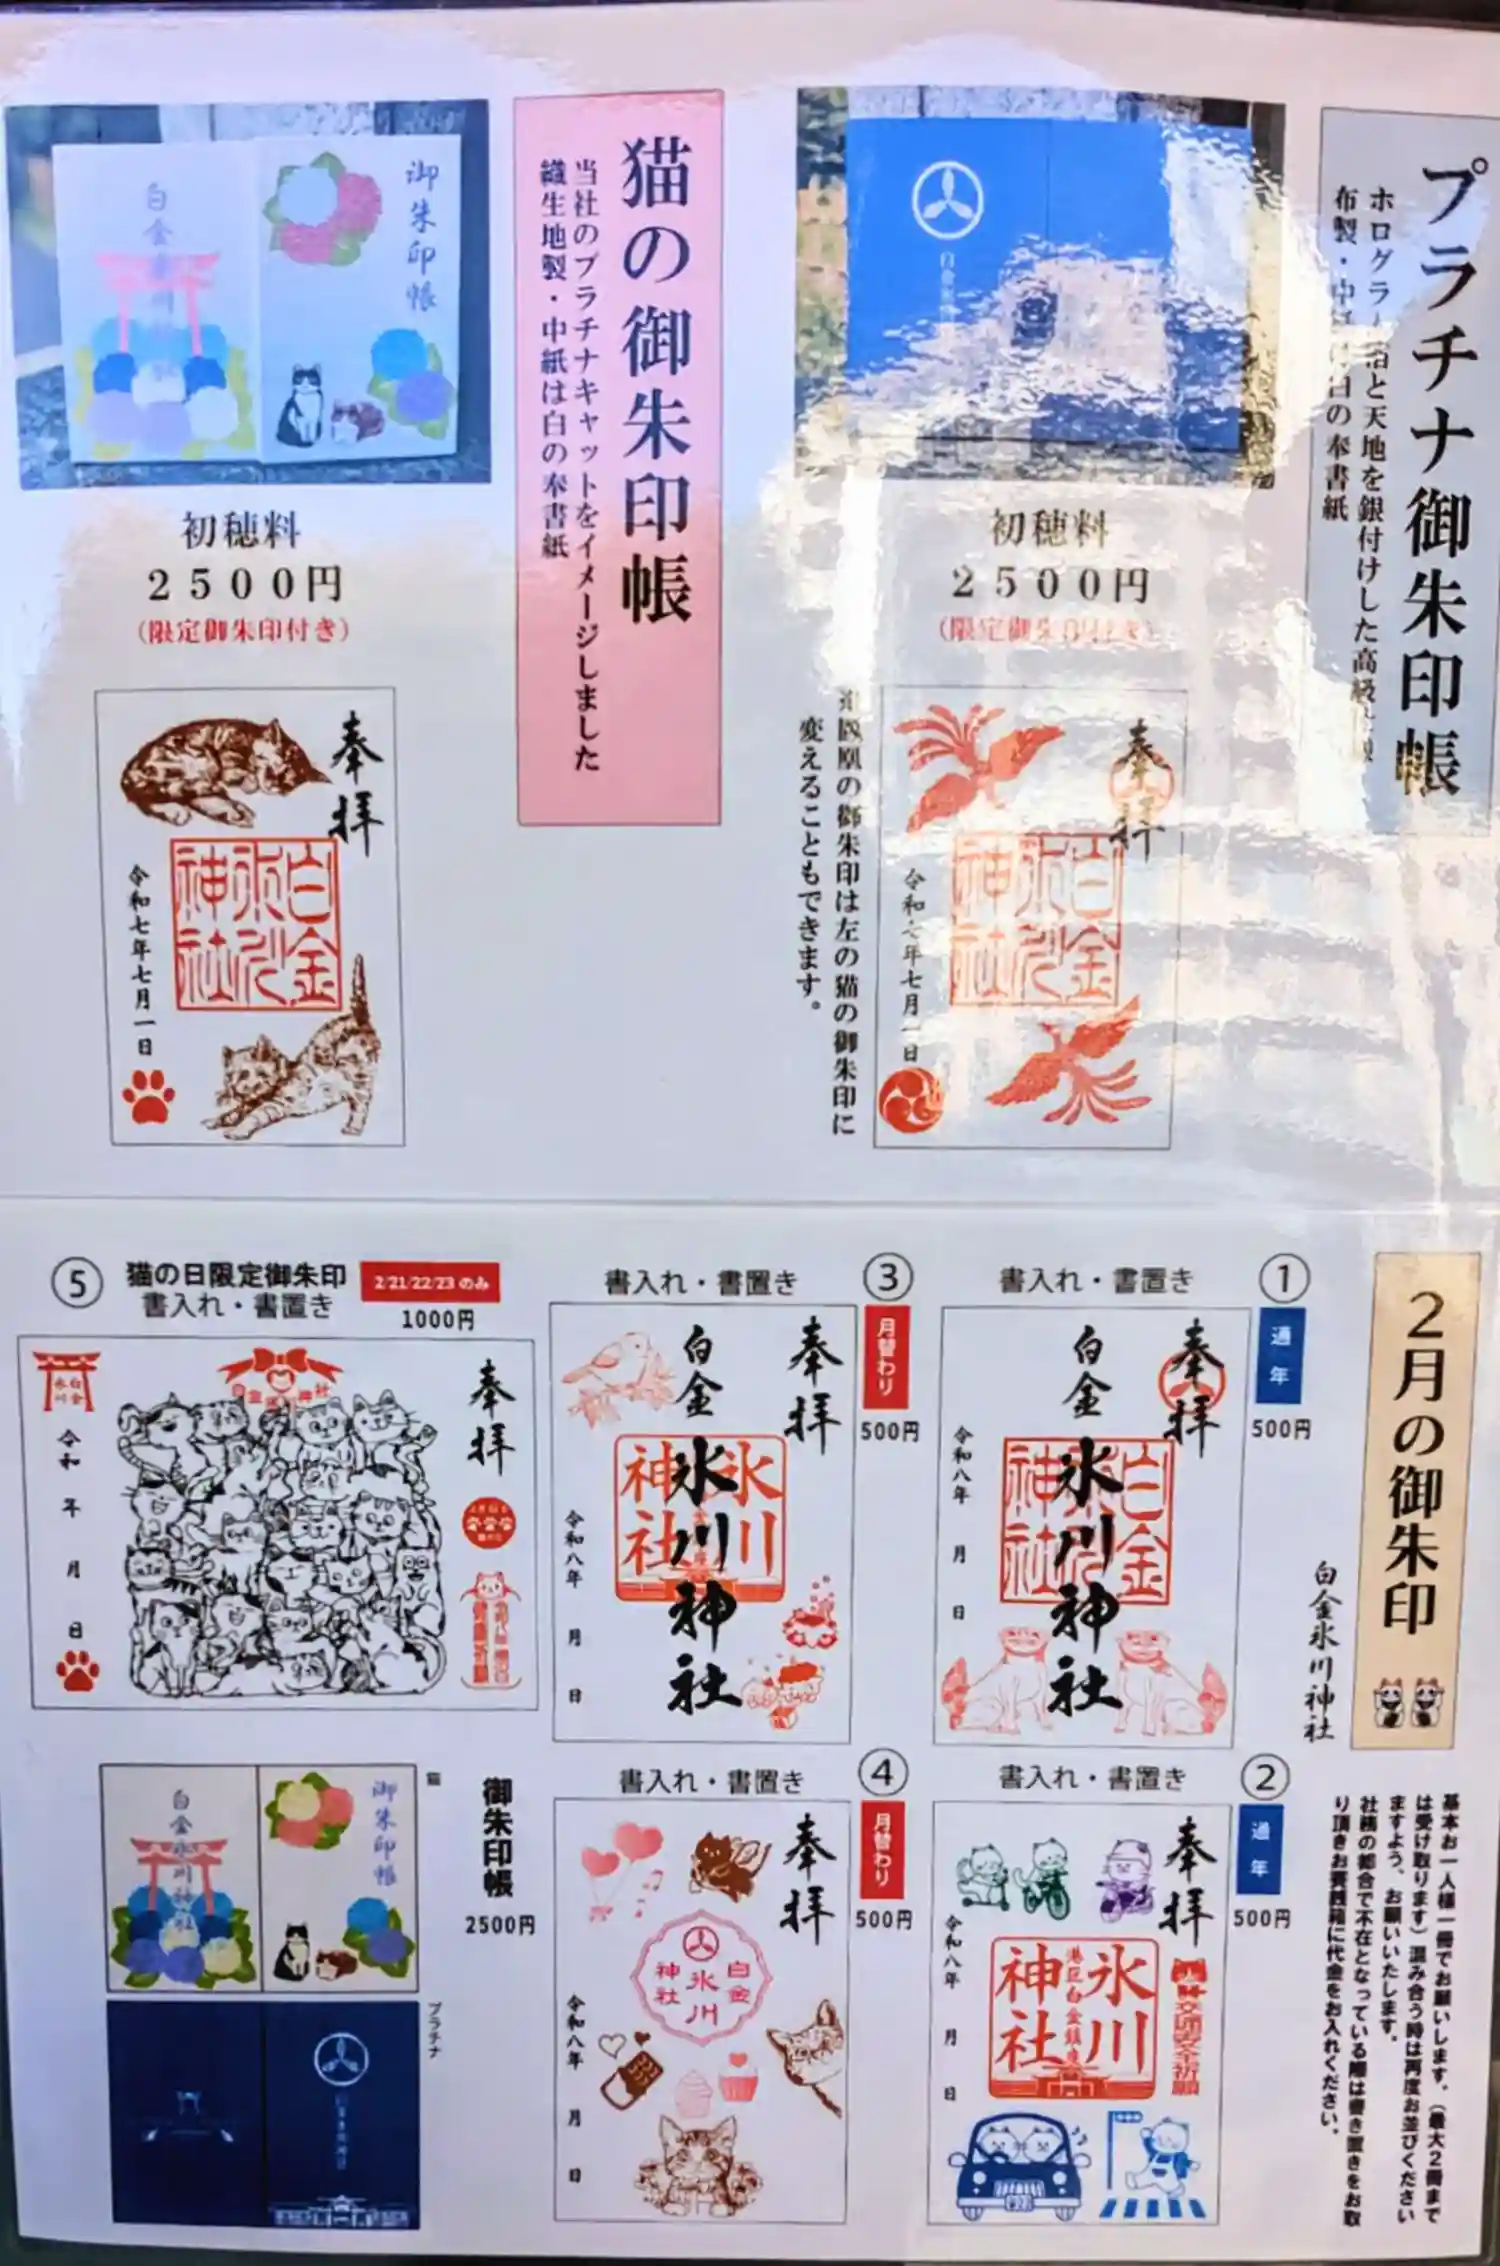 プラチナ御朱印帳
初穂料
2500円
(限定御朱印付き)
奉拝
白金氷川神社
令和七年七月一日
の御朱印は左の猫の御朱印に
変えることもできます。
猫の御朱印帳
当社のプラチナキャットをイメージしました
織生地製・中紙は白の奉書紙
御朱印帳
白金
初穂料
2500円
(限定御朱印付き)
奉拝
白金氷川神社
令和七年七月一日
2月の御朱印
白金氷川神社
基本お一人様一冊でお願いします。(最大2冊まで
は受け取ります)混み合う時は再度お並びください
ますよう、お願いいたします。
社務の都合で不在となっている際は書き置きをお取
り頂きお賽銭箱に代金をお入れください。
①
書入れ・書置き
通年
500円
奉拝
白金氷川神社
白金氷川神社
令和八年 月 日
②
書入れ・書置き
通年
500円
奉拝
氷川神社
港区白金鎮座
交通安全祈願
令和八年 月 日
③
書入れ・書置き
月替わり
500円
奉拝
白金氷川神社
氷川神社
令和八年 月 日
④
書入れ・書置き
月替わり
500円
奉拝
白金氷川神社
令和八年 月 日
⑤
猫の日限定御朱印
書入れ・書置き
2/21/22/23のみ
1000円
奉拝
白金氷川
令和 年 月 日
御朱印帳
2500円
猫
御朱印帳
白金氷川神社
プラチナ